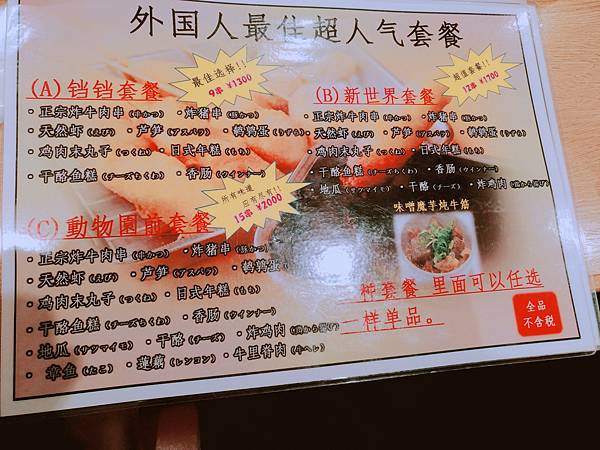 外国人最佳超人气套餐
(A)铛铛套餐
最佳选择!!
9串 ¥1300
・正宗炸牛肉串(串かつ) ・炸猪串(豚かつ)
・天然虾(えび) ・芦笋(アスパラ) ・鹌鹑蛋(うずら)
・鸡肉末丸子(つくね) ・日式年糕(もち)
・干酪鱼糕(チーズちくわ) ・香肠(ウインナー)
(B)新世界套餐
超值套餐!!
12串 ¥1700
・正宗炸牛肉串(串かつ) ・炸猪串(豚かつ)
・天然虾(えび) ・芦笋(アスパラ) ・鹌鹑蛋(うずら)
・鸡肉末丸子(つくね) ・日式年糕(もち)
・干酪鱼糕(チーズちくわ) ・香肠(ウインナー)
・地瓜(サツマイモ) ・干酪(チーズ) ・炸鸡肉
(C)動物園前套餐
所有味道
应有尽有!!
15串 ¥2000
・正宗炸牛肉串(串かつ) ・炸猪串(豚かつ)
・天然虾(えび) ・芦笋(アスパラ) ・鹌鹑蛋
・鸡肉末丸子(つくね) ・日式年糕(もち)
・干酪鱼糕(チーズちくわ) ・香肠(ウインナー)
・地瓜(サツマイモ) ・干酪(チーズ) ・炸鸡肉
・章鱼(たこ) ・蓮藕(レンコン) ・牛里脊肉(牛ヘレ)
味噌魔芋炖牛筋
一种套餐 里面可以任选
一样单品。
全品
不含税